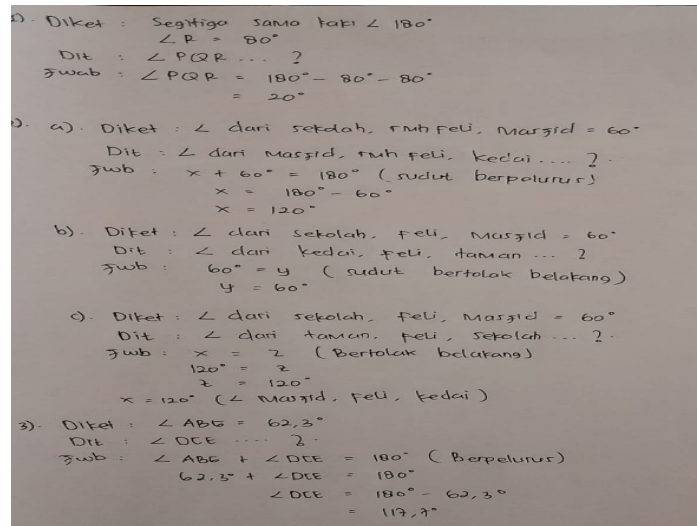 1). Diket : Segitiga sama kaki ∠ 180°
∠R = 80°
Dit : ∠ PQR ... ?
Jwab : ∠ PQR = 180° - 80° - 80°
= 20°
2). a). Diket : ∠ dari sekolah, rmh Feli, Masjid = 60°
Dit : ∠ dari Masjid, rmh Feli, kedai .... ?
Jwb : x + 60° = 180° (sudut berpelurus)
x = 180° - 60°
x = 120°
b). Diket : ∠ dari sekolah, Feli, Masjid = 60°
Dit : ∠ dari kedai, Feli, taman ... ?
Jwb : 60° = y (sudut bertolak belakang)
y = 60°
c). Diket : ∠ dari sekolah, Feli, Masjid = 60°
Dit : ∠ dari taman, Feli, sekolah ... ?
Jwb : x = z (Bertolak belakang)
120° = z
z = 120°
x = 120° (∠ Masjid, Feli, kedai)
3). Diket : ∠ ABG = 62,3°
Dit : ∠ DCE .... ?
Jwb : ∠ ABG + ∠ DCE = 180° (Berpelurus)
62,3° + ∠DCE = 180°
∠DCE = 180° - 62,3°
= 117,7°